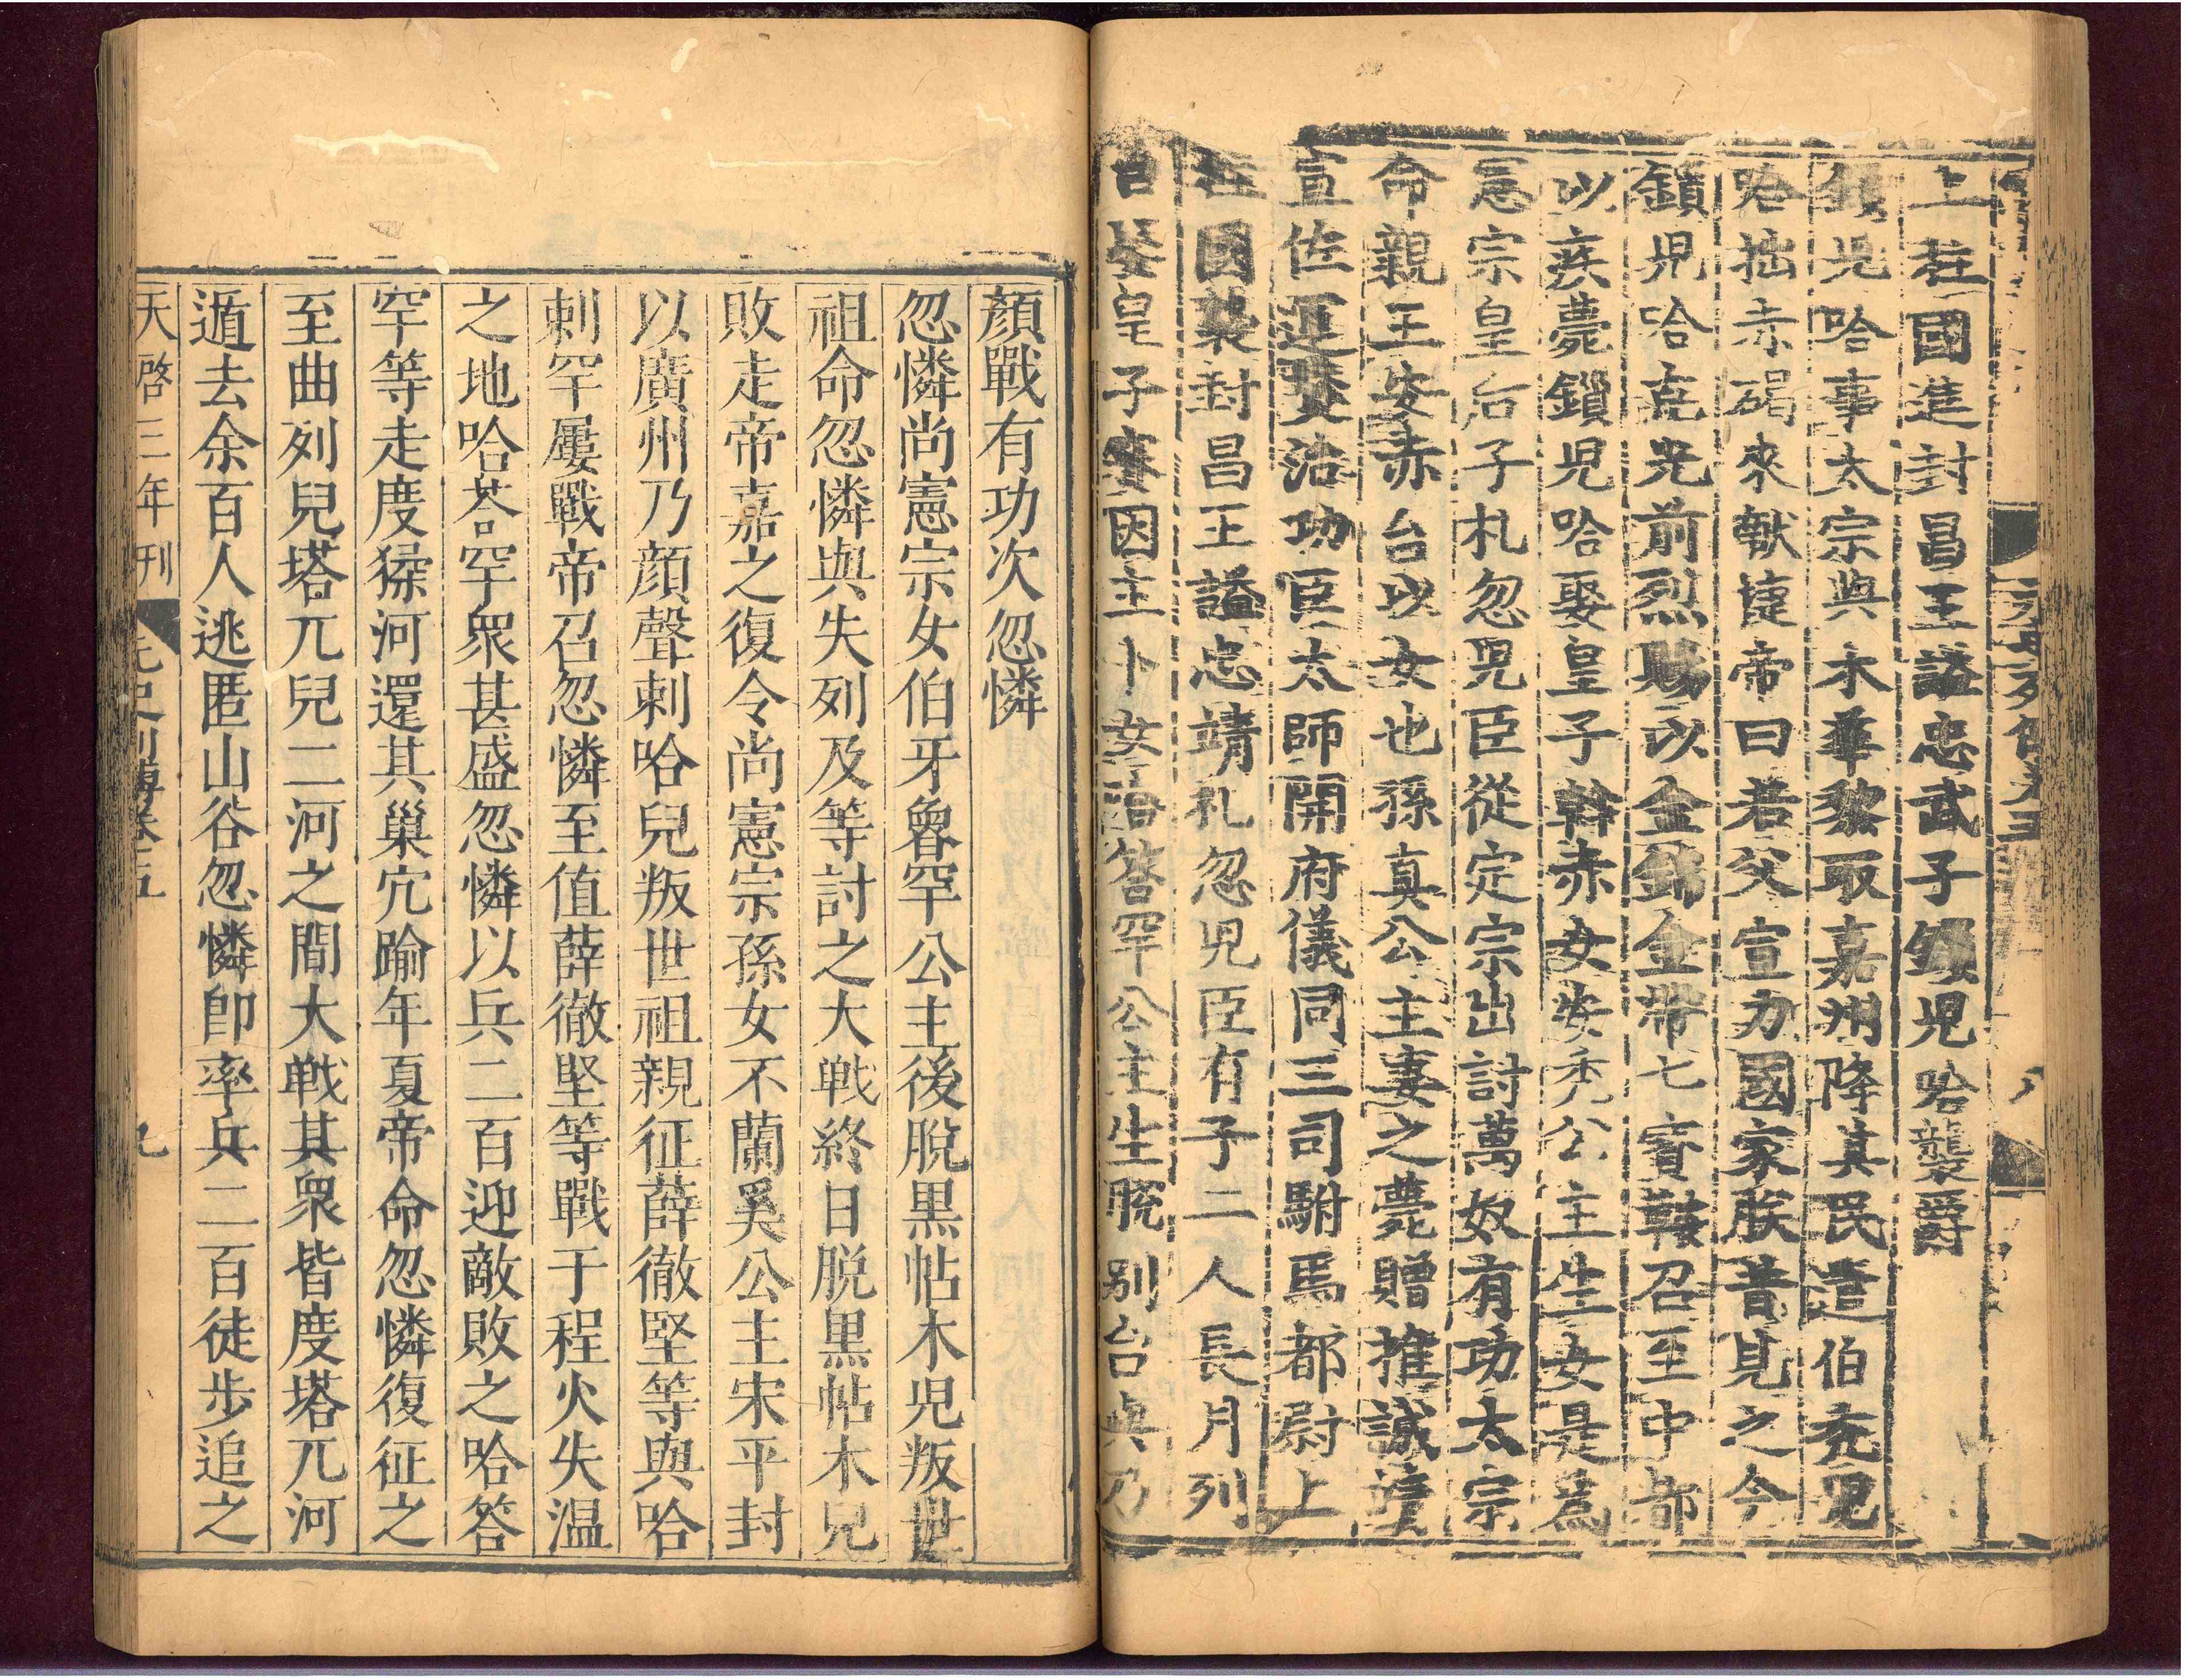 上柱國進封昌王諡忠武子鎖児哈襲爵
鎖児哈事太宗與木華黎取嘉州降其民遣伯禿児
哈拙赤碣來獻捷帝曰若父宣力國家朕昔見之今
鎖児哈克光前烈賜以金錦金帶七寳鞍召至中都
以疾薨鎖児哈娶皇子斡赤女安秃公主生女是為
憲宗皇后子札忽児臣從定宗出討萬奴有功太宗
命親王安赤台以女也孫真公主妻之薨贈推誠
宣佐運賛治功臣太師開府儀同三司駙馬都尉上
柱國襲封昌王諡忠靖札忽児臣有子二人長月列
台娶皇子賽因主卜女哈答罕公主生脱别台與乃
顔戰有功次忽憐
忽憐尚憲宗女伯牙魯罕公主後脱黒帖木児叛世
祖命忽憐與失列及等討之大戦終日脱黒帖木兒
敗走帝嘉之復令尚憲宗孫女不蘭奚公主宋平封
以廣州乃顔聲剌哈兒叛世祖親征薛徹堅等與哈
剌罕屢戰帝召忽憐至值薛徹堅等戰于程火失温
之地哈荅罕衆甚盛忽憐以兵二百迎敵敗之哈答
罕等走度猱河還其巢穴踰年夏帝命忽憐復征之
至曲列兒塔兀兒二河之間大戦其衆皆度塔兀河
遁去余百人逃匿山谷忽憐卽率兵二百徒步追之
天啓三年刊 元史列傳卷五 九